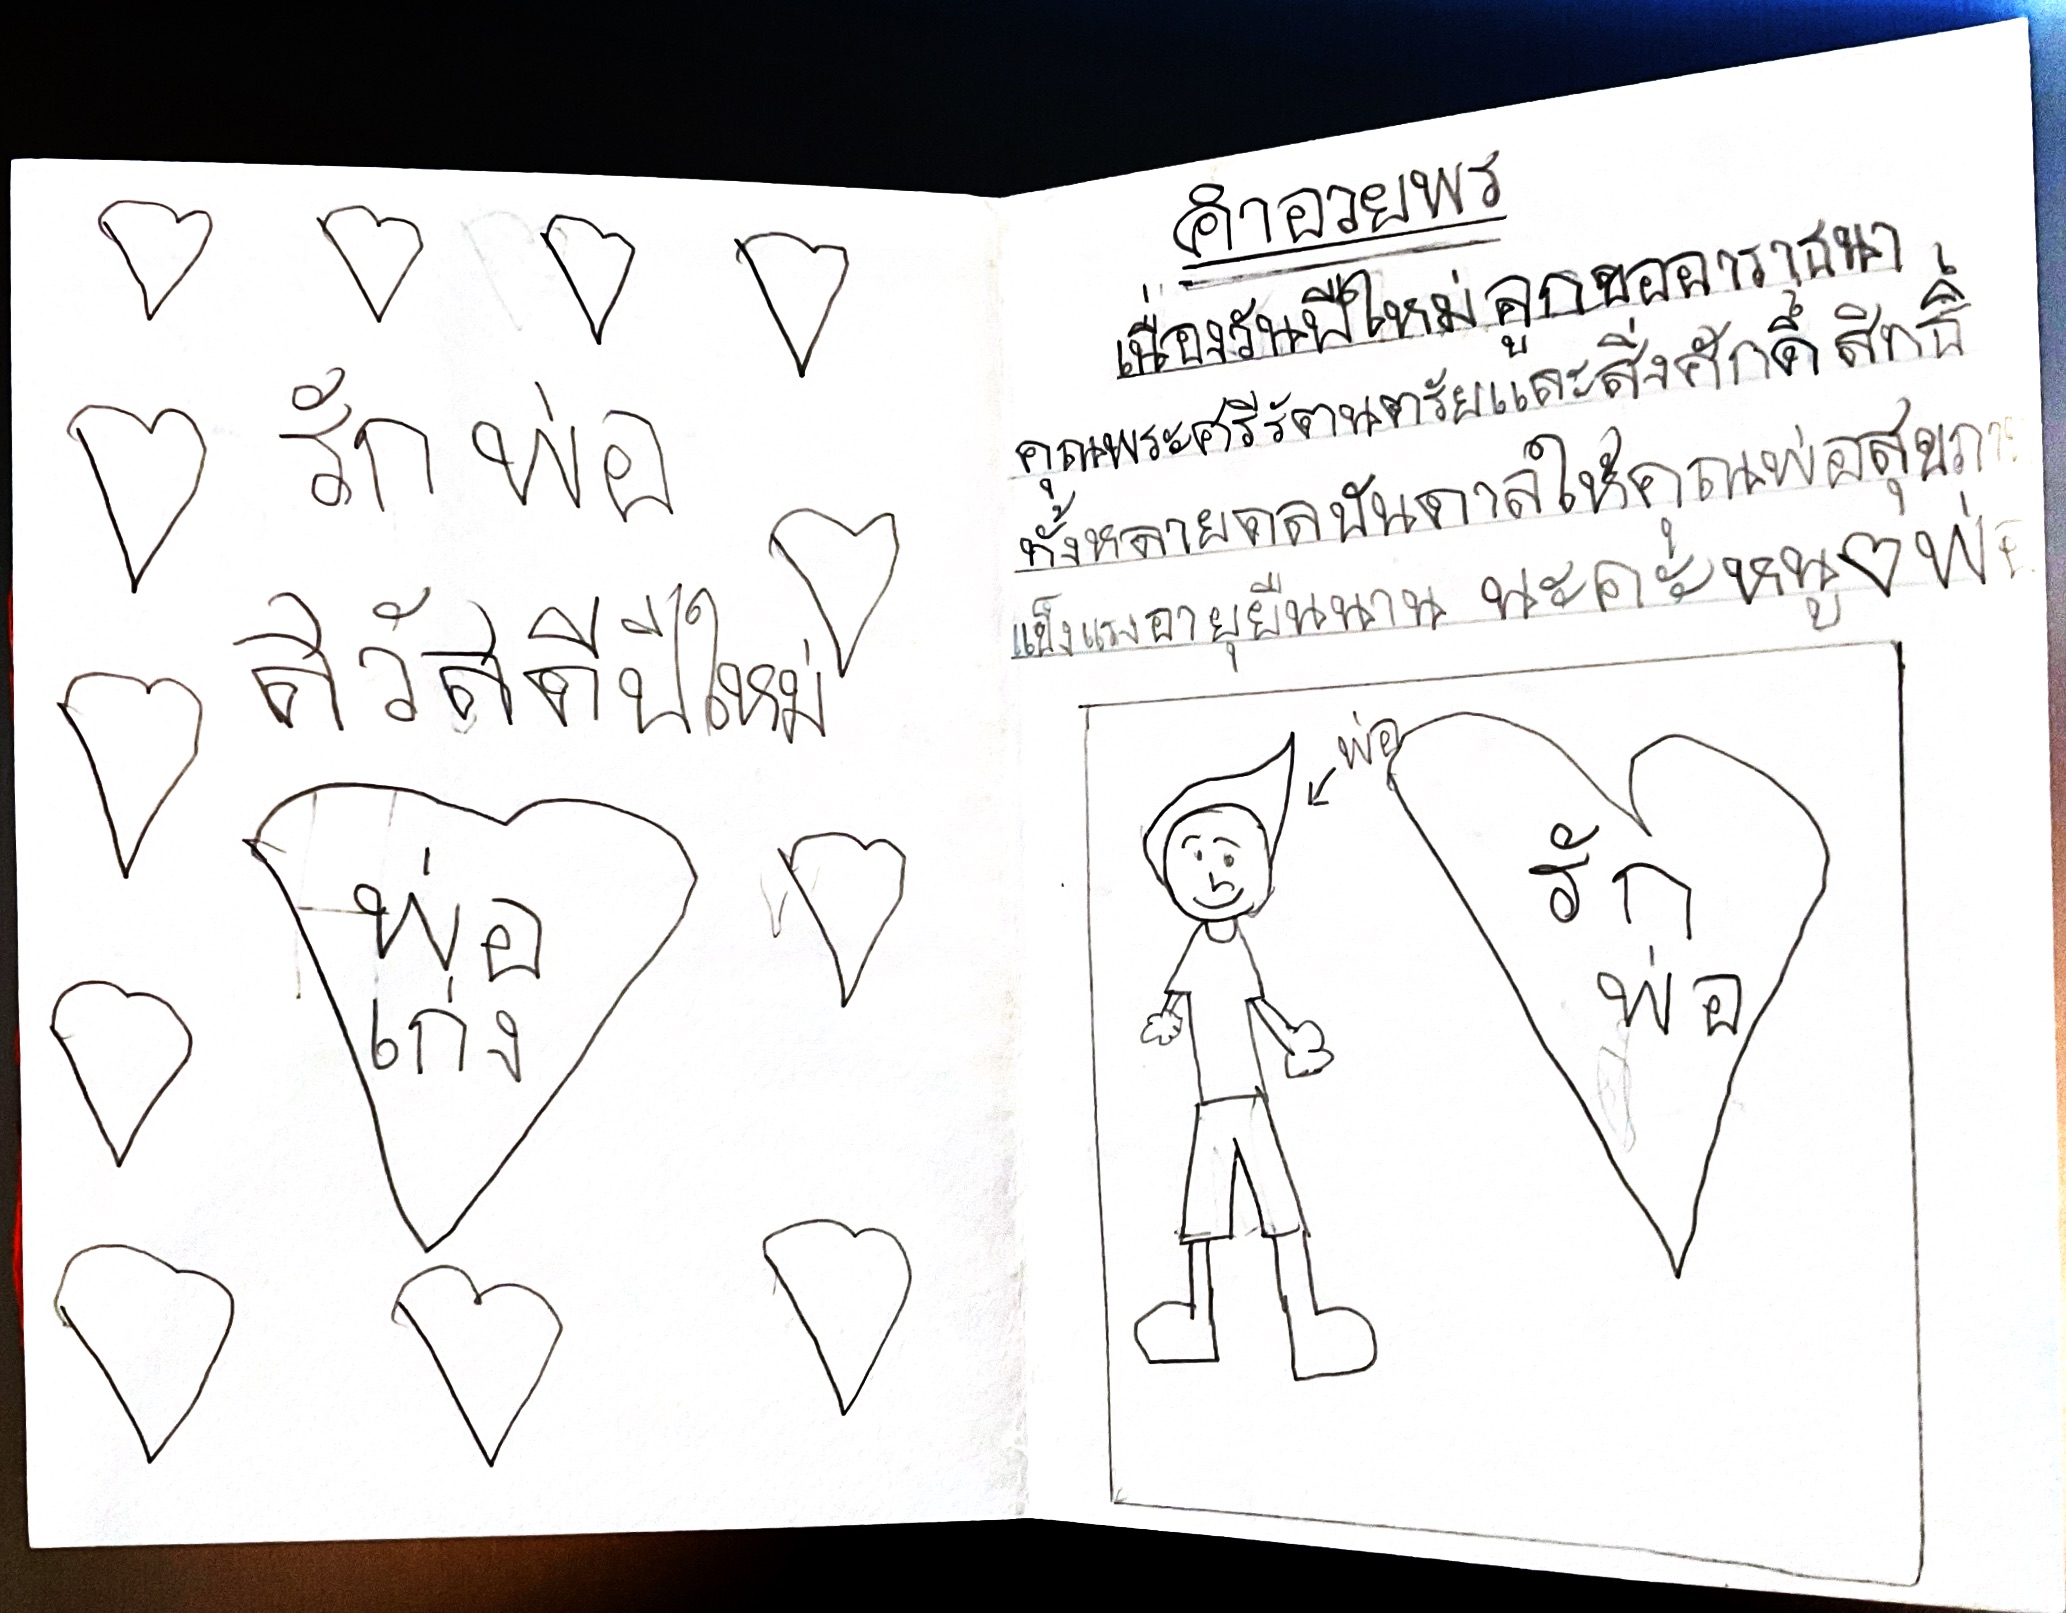 รัก พ่อ
สวัสดีปีใหม่
พ่อ
เก่ง
คำอวยพร
เนื่องวันปีใหม่ ลูกขออาราธนา
คุณพระศรีรัตนตรัยและสิ่งศักดิ์สิทธิ์
ทั้งหลายดลบันดาลให้คุณพ่อสุขภา
แข็งแรงอายุยืนนาน นะคะ หนู♡พ่อ
พ่อ
รัก
พ่อ